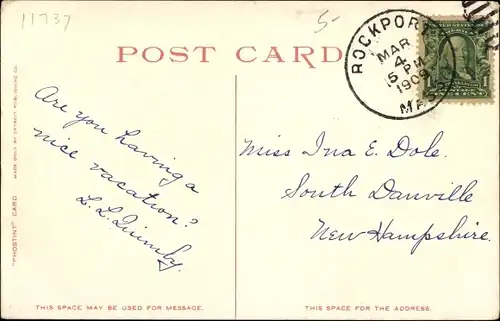 11737
5-
POST CARD
ROCKPORT
MAR
4
5 PM
1909
MASS.
Are you having a
nice vacation?
L. L. Quimby.
Miss Ina E. Dole.
South Danville
New Hampshire.
"PHOSTINT" CARD
MADE ONLY BY DETROIT PUBLISHING CO.
THIS SPACE MAY BE USED FOR MESSAGE.
THIS SPACE IS FOR THE ADDRESS.